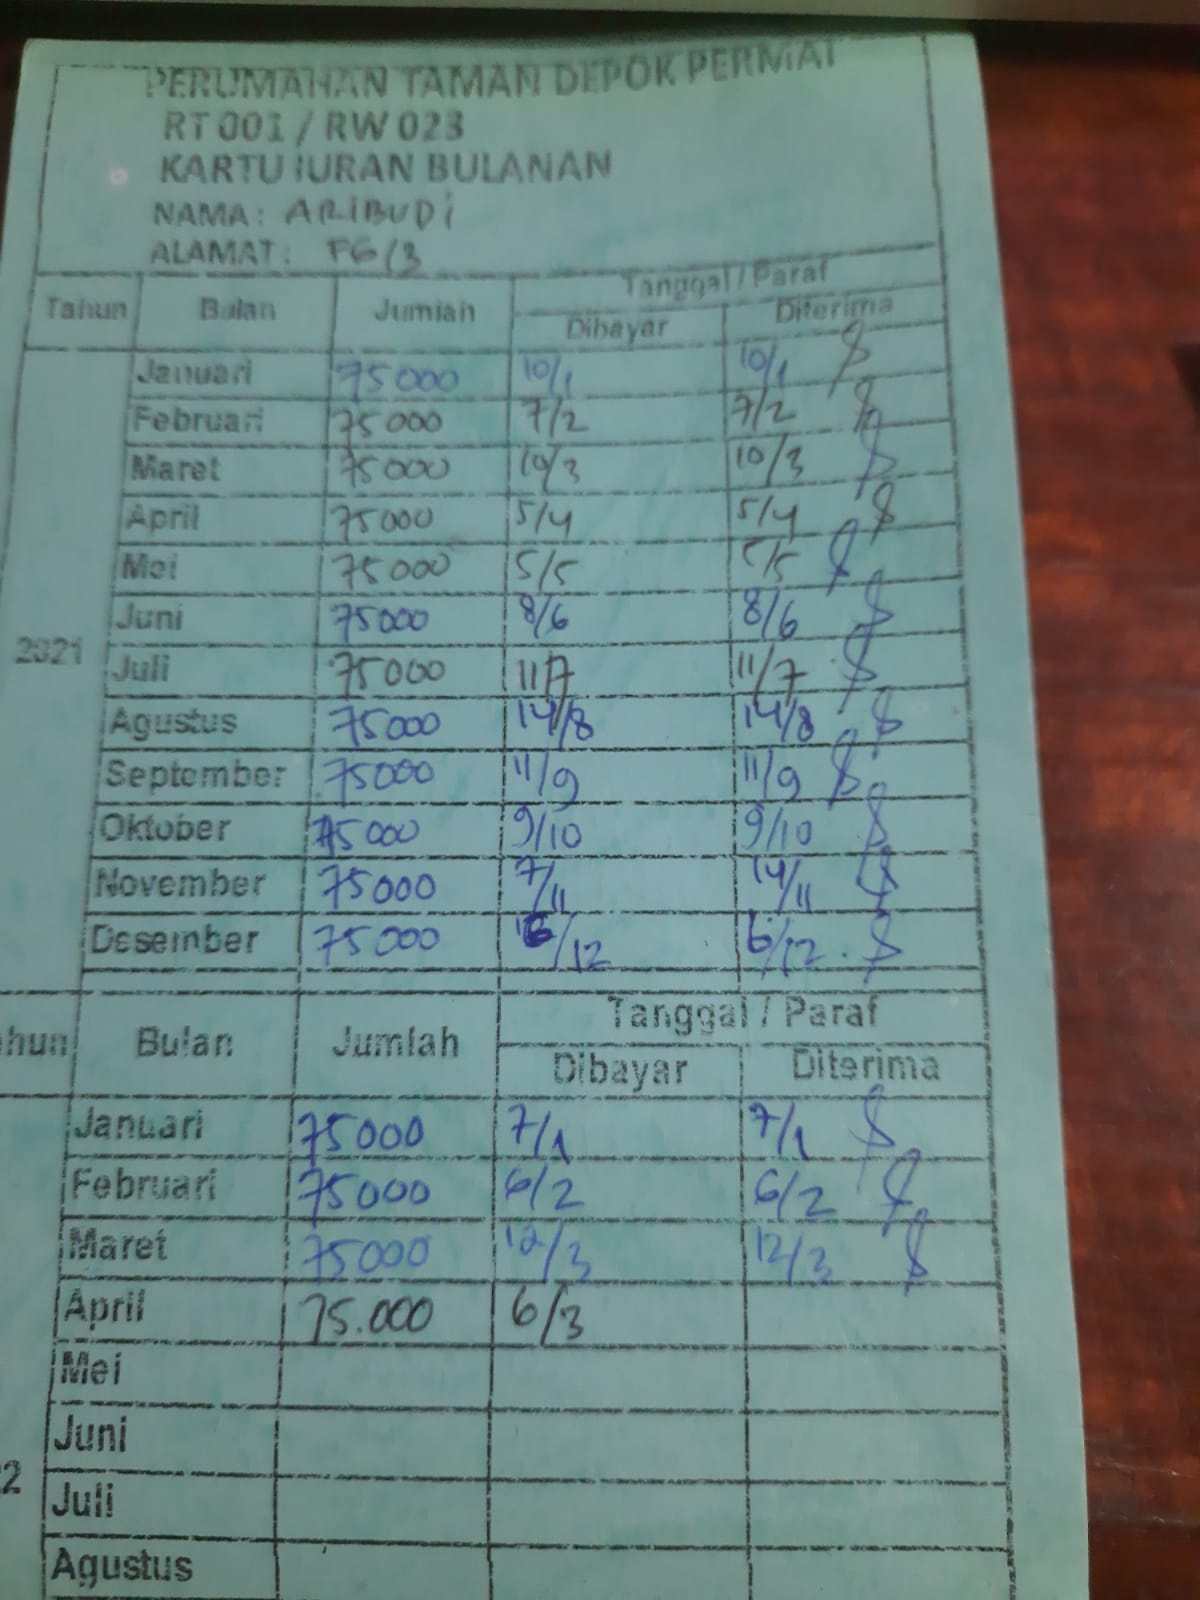 PERUMAHAN TAMAN DEPOK PERMAT
RT 001 / RW 023
KARTU IURAN BULANAN
NAMA : ARIBUDI
ALAMAT : F6/3
Tahun Bulan Jumlah Tanggal / Paraf
Dibayar Diterima
Januari 75000 10/1 10/1
Februari 75000 7/2 7/2
Maret 75000 10/3 10/3
April 75000 5/4 5/4
Mei 75000 5/5 5/5
Juni 75000 8/6 8/6
2021
Juli 75000 11/7 11/7
Agustus 75000 14/8 14/8
September 75000 11/9 11/9
Oktober 75000 9/10 9/10
November 75000 7/11 14/11
Desember 75000 6/12 6/12
hun Bulan Jumlah Tanggal / Paraf
Dibayar Diterima
Januari 75000 7/1 7/1
Februari 75000 6/2 6/2
Maret 75000 12/3 12/3
April 75.000 6/3
Mei
Juni
2
Juli
Agustus